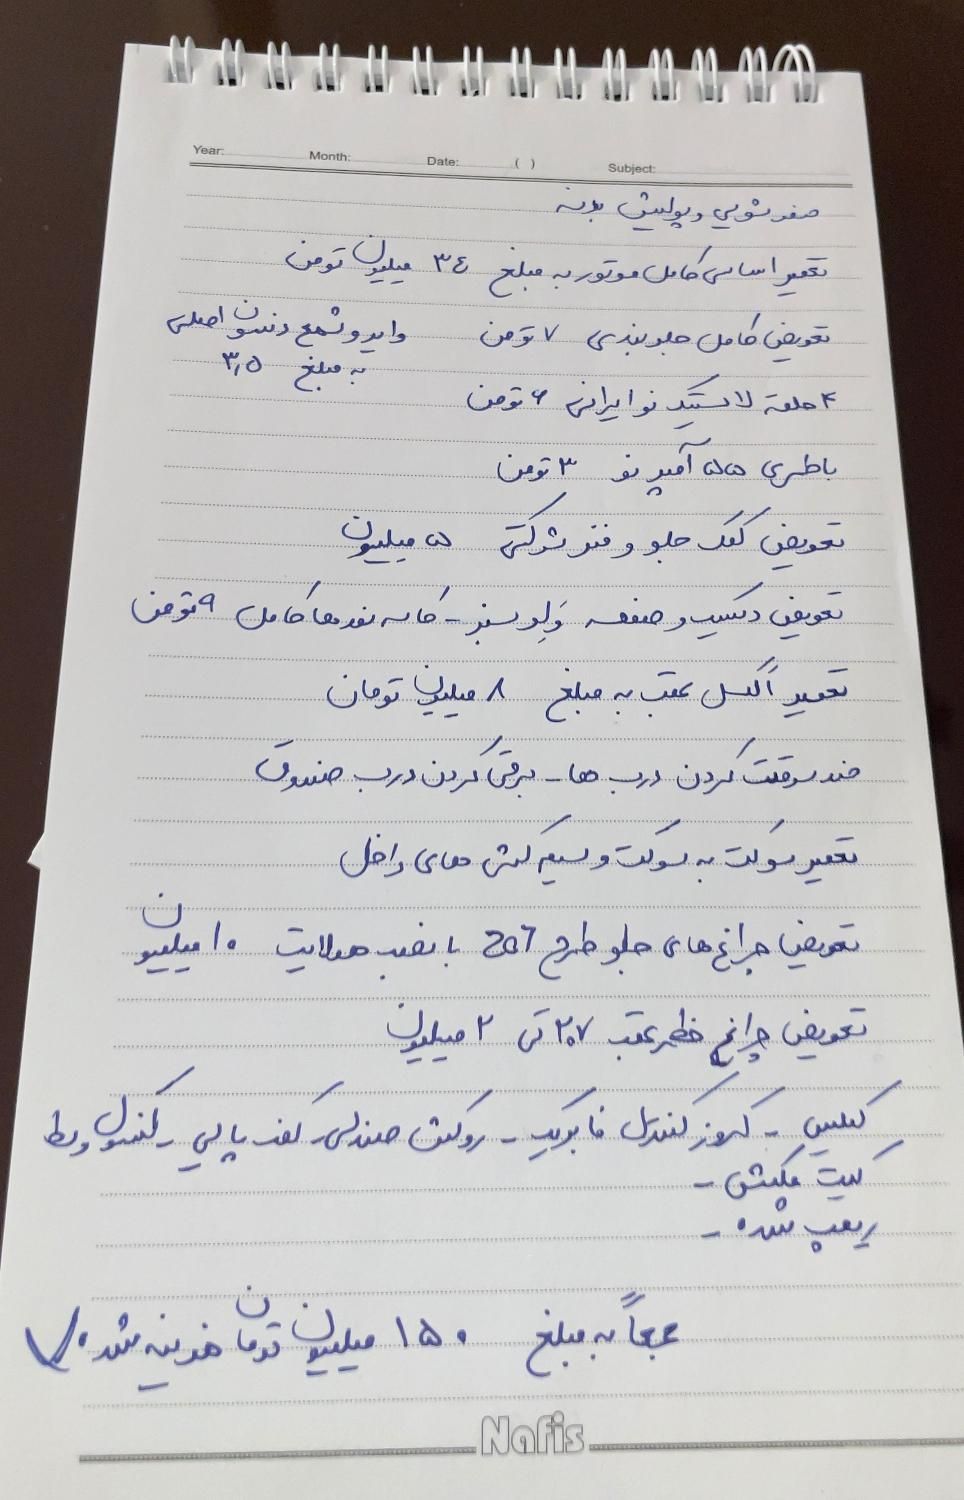 Year: Month: Date: ( ) Subject:
صفرشویی و پولیش بدنه
تعمیر اساسی کامل موتور به مبلغ ۳٤ میلیون تومن
تعویض کامل جلوبندی ۷ تومن وایر و شمع دنسون اصلی
به مبلغ ۳٫۵
۴ حلقه لاستیک نو ایرانی ۶ تومن
باطری ۵۵ آمپر نو ۳ تومن
تعویض کمک جلو و فنر شرکتی ۵ میلیون
تعویض دیسک و صفحه وَلِو سنبز - کاسه نمدها کامل ۹ تومن
تعمیر اکسل عقب به مبلغ ۸ میلیون تومان
ضد سرقت کردن درب ها - برقی کردن درب صندوق
تعمیر سوکت به سوکت و سیم کشی های داخل
تعویض چراغ های جلو طرح 207 با نصب هدلایت ۱۰ میلیون
تعویض چراغ خطر عقب ۲۰۷ ئی ۲ میلیون
کیلس - کروز کنترل فابریک - روکش صندلی - کف پایی - کنسول وسط
کیت مکش -
ریمپ شده -
جمعاً به مبلغ ۱۵۰ میلیون تومان هزینه شده
Nafis